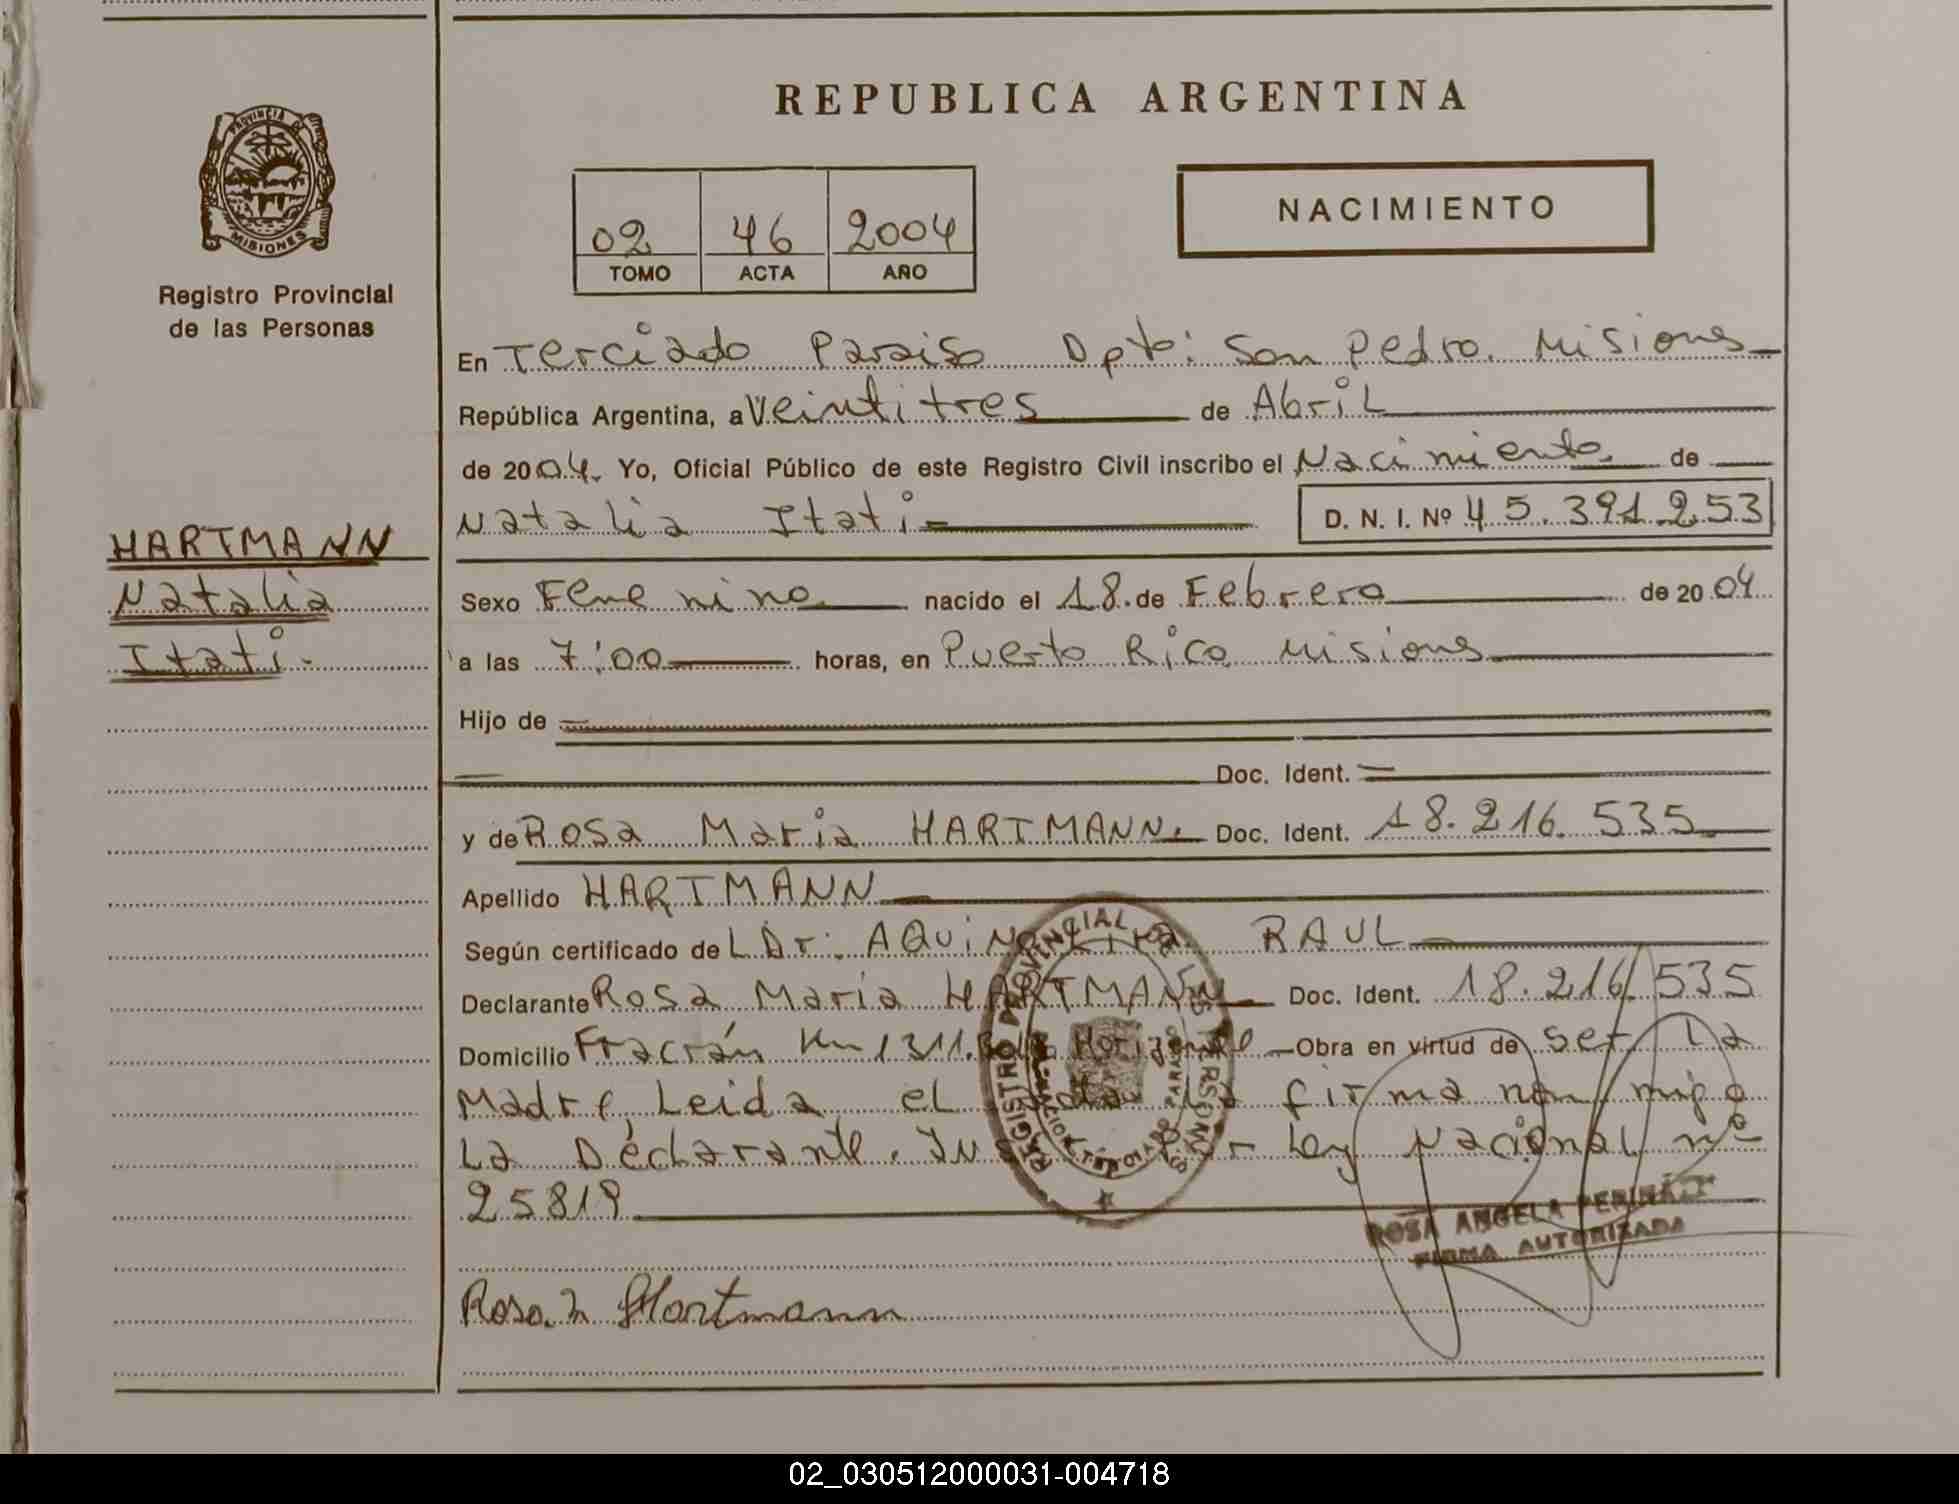 REPUBLICA ARGENTINA
PROVINCIA DE
MISIONES
Registro Provincial
de las Personas
02 46 2004
TOMO ACTA AÑO
NACIMIENTO
En Terciado Paraiso Dpto: San Pedro. Misiones
República Argentina, a Veintitres de Abril
de 2004. Yo, Oficial Público de este Registro Civil inscribo el Nacimiento de
Natalia Itati D. N. I. Nº 45.391.253
HARTMANN
Natalia
Itati.
Sexo Femenino nacido el 18 de Febrero de 2004
a las 7:00 horas, en Puerto Rico Misiones
Hijo de
Doc. Ident.
y de Rosa Maria HARTMANN. Doc. Ident. 18.216.535
Apellido HARTMANN
Según certificado de L Dr: AQUINO RAUL
Declarante Rosa Maria HARTMANN Doc. Ident. 18.216.535
Domicilio Fracrán Km 1311. Horizonte Obra en virtud de ser la
Madre, Leida el la firma con migo
La Declarante. Ley Nacional nº
25819
REGISTRO PROVINCIAL DE LAS PERSONAS
ROSA ANGELA
FIRMA AUTORIZADA
Rosa. M Hartmann
02_030512000031-004718